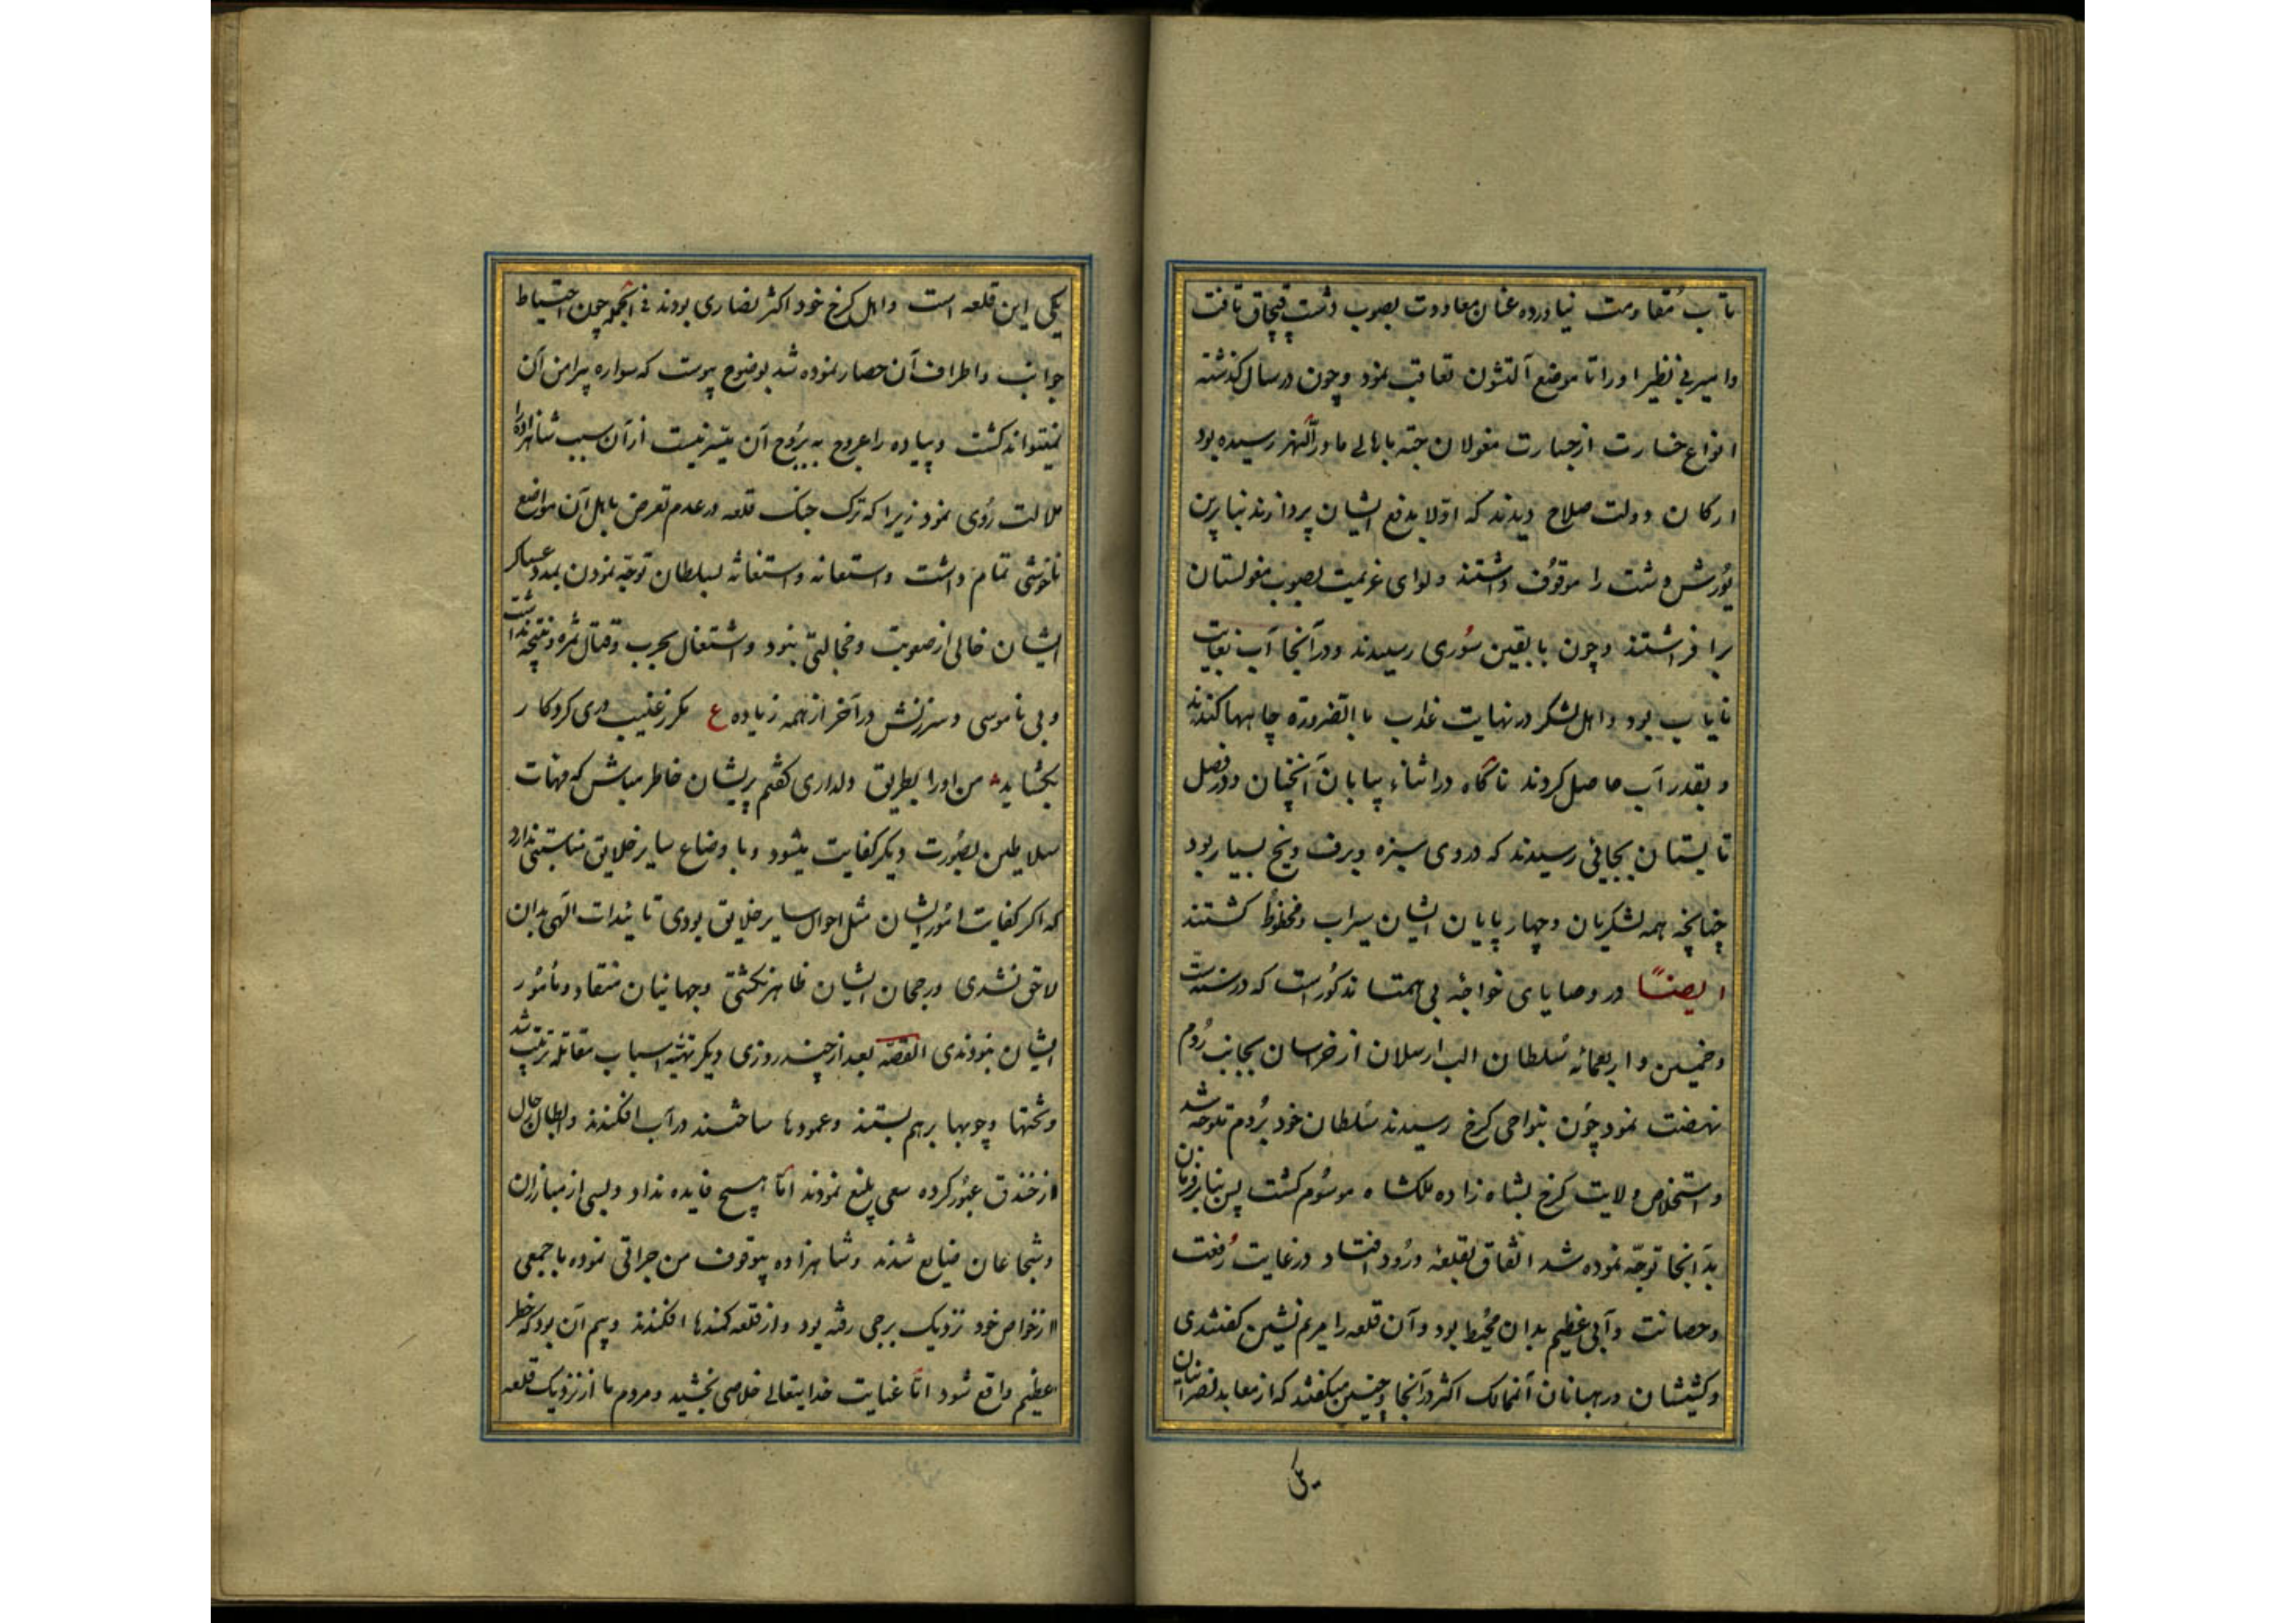 تاب مقاومت نیاورده عنان معاودت بصوب دشت قپچاق تافت
وامیر بی نظیر اورا تا موضع آلتشون تعاقب نمود وچون درسال کذشته
انواع خسارت ازجسارت مغولان جته باهالی ماورآلنهر رسیده بود
ارکان دولت صلاح دیدند که اولا بدفع ایشان پردازند بنابرین
یورش دشت را موقوف داشتند ولوای عزیمت بصوب مغولستان
برافراشتند وچون با بقین سوری رسیدند ودرآنجا آب بغایت
نایاب بود واهل لشکر درنهایت عذاب بالضرورة چاهها کندند
وبقدر آب حاصل کردند ناکاه دراثناء بیابان آنچنان ودرفصل
تابستان بجائی رسیدند که دروی سبزه وبرف ویخ بسیار بود
چنانچه همه لشکریان وچهارپایان ایشان سیراب ومحظوظ کشتند
ایضا در وصایای خواجه بی همتا مذکوراست که درسنه ست
وخمسین واربعمائه سلطان الب ارسلان از خراسان بجانب روم
نهضت نمود چون بنواحی کرخ رسیدند سلطان خود بروم متوجه شد
واستخلاص ولایت کرخ بشاه زاده ملکشاه موسوم کشت پس بنابرفرمان
بدآنجا توجه نموده شد اتفاق بقلعه ورود افتاد درغایت رفعت
وحصانت وآبی عظیم بدان محیط بود وآن قلعه را مریم نشین کفتندی
وکشیشان ورهبانان آنممالک اکثر درآنجا وچنین میکفتند که ازمعابد نصرانیان
یکی
یکی این قلعه است واهل کرخ خود اکثر نصاری بودند فی الجمله چون احتیاط
جوانب واطراف آن حصار نموده شد بوضوح پیوست که سواره پیرامن آن
نمیتواند کشت وپیاده را عروج به بروج آن میسر نیست ازآن سبب شاهزاده را
ملالت روی نمود زیرا که ترک جنک قلعه وعدم تعرض باهل آن مواضع
ناخوشی تمام داشت واستعانه واستغاثه بسلطان توجه نمودن بمدد عساکر
ایشان خالی ازصعوبت وخجالتی نبود واشتغال بحرب وقتال ثمره ونتیجه نداشت
وبی ناموسی وسرزنش درآخر ازهمه زیاده ع مکر زغیب دری کردکار
بکشاید من اورا بطریق دلداری کفتم پریشان خاطر مباش که مهمات
سلاطین بصورت دیکر کفایت میشود وباوضاع سایر خلایق مناسبتی ندارد
که اکر کفایت امور ایشان مثل احوال سایر خلایق بودی تائیدات الهی بدان
لاحق نشدی ورجحان ایشان ظاهر نکشتی وجهانیان منقاد ومأمور
ایشان نبودندی القصه بعد ازچند روزی دیکر تهیئه اسباب مقاتله ترتیب شد
وتختها وچوبها برهم بستند وعمودها ساختند درآب افکندند وابطال رجال
ازخندق عبور کرده سعی بلیغ نمودند اما هیچ فایده نداد وبسی ازمبارزان
وشجاعان ضایع شدند وشاهزاده بیوقوف من جراتی نموده با جمعی
ازخواص خود نزدیک برجی رفته بود وازقلعه کمندها افکندند وبیم آن بود که خطر
عظیم واقع شود اما عنایت خدایتعالی خلاصی بخشید ومردم ما ازنزدیک قلعه